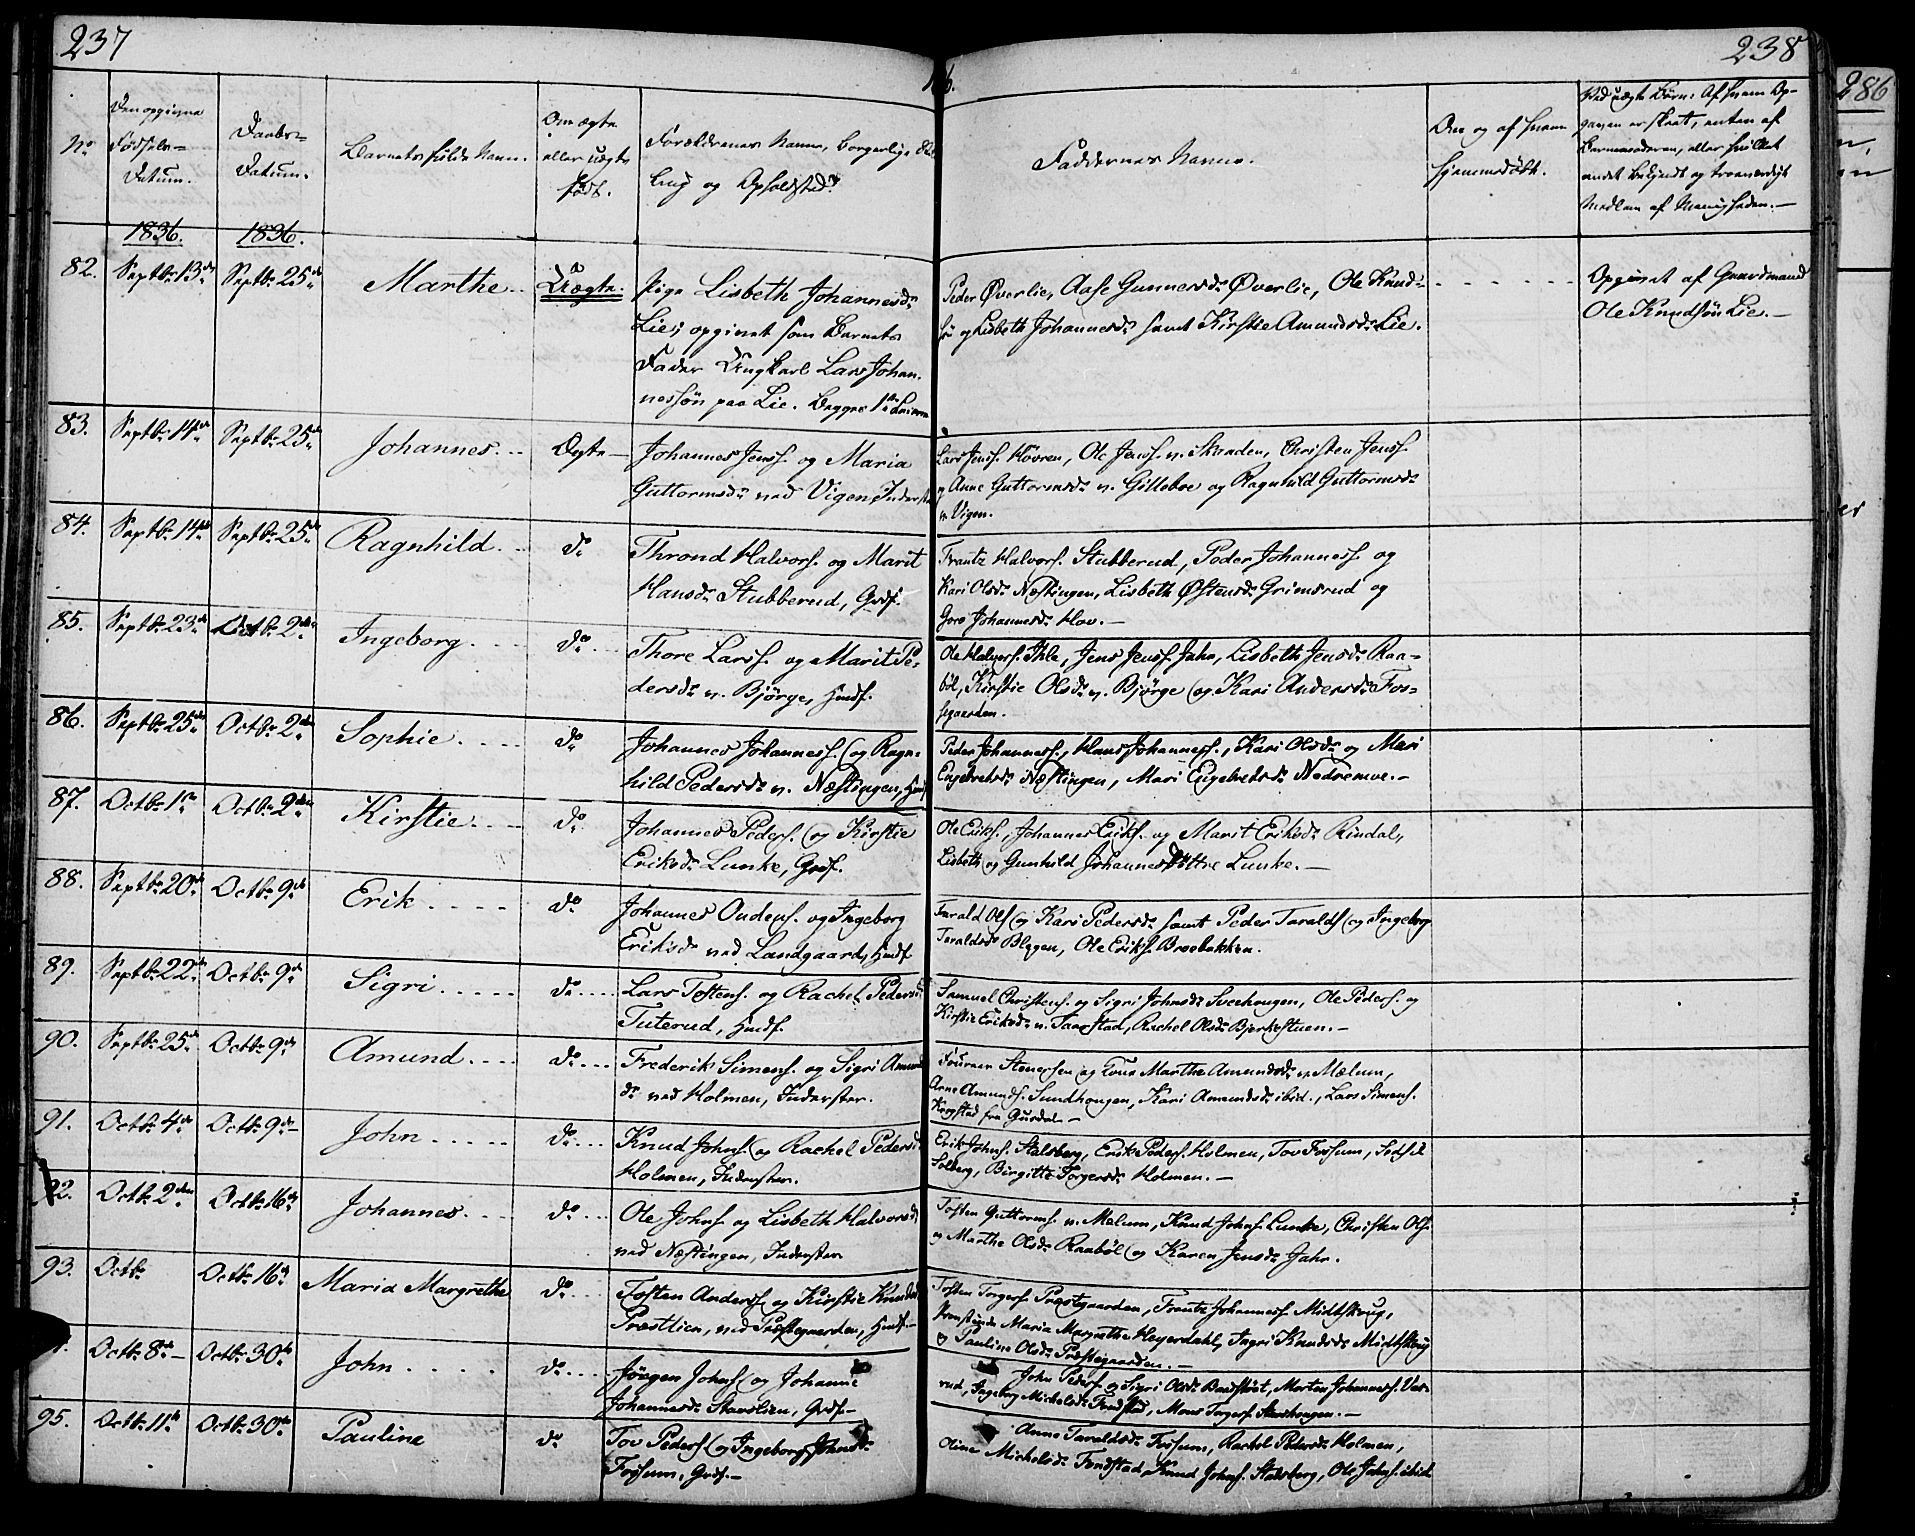 237
238
286
No
Den opgivne
Fødsels-
Datum.
Daabs-
Datum.
Barnets fulde Navn.
Om ægte
eller uægte
født.
Forældrenes Navne, borgerlige
og Opholdsted.
Faddernes Navne.
Om og af hvem
hjemmedøbt.
Ved uægte Børn: Af hvem Op-
gaven er skeet, enten af
Barnemoderen, eller hvilket
andet bekjendt og troeværdigt
Medlem af Menigheden.
1836. 1836.
82. Septbr 13de Septbr 25de Marthe Uægte.
Pige Lisbeth Johannesdr
Lie; opgivet som Barnets
Fader Ungkarl Lars Johan-
nessøn paa Lie. Begges 1ste
Peder Øverlie, Aase Gunnersdr Øverlie, Ole Knud-
og Lisbeth Johannesdr samt Kirstie Amundsdr Lie.
Opgivet af Gaardmand
Ole Knudsøn Lie.
83. Septbr 14de Septbr 25de Johannes Ægte
Johannes Jensf. og Maria
Guttormsdr ved Vigen, Inderster
Lars Jensf. Hovren, Ole Jensf. v. Skunden, Christen Jensf.
Anne Guttormsdr v. Gilleboe og Ragnhild Guttormsdr
v. Vigen.
84. Septbr 14de Septbr 25de Ragnhild do
Thrond Halvorsf. og Marit
Hansdr Stubberud, Grdf.
Frantz Halvorsf. Stubberud, Peder Johannesf. og
Kari Olsdr Næstingen, Lisbeth Østensdr Grimsrud og
Goro Johannesdr Hov.
85. Septbr 23de Octbr 2den Ingeborg do
Thore Larsf. og Marit Pe-
dersdr v. Bjørge, Huusf.
Ole Halvorsf. Ihle, Jens Jensf. Jahr, Lisbeth Jensdr Raa-
bøl, Kirstie Olsdr v. Bjørge og Kari Andersdr Fos-
segaarden.
86. Septbr 25de Octbr 2den Sophie do
Johannes Johannesf. og Ragn-
hild Pedersdr v. Næstingen, Huusf.
Peder Johannesf., Hans Johannesf., Kari Olsdr og Mari
Engebretsdr Næstingen, Mari Engebretsdr Nedremoe.
87. Octbr 1ste Octbr 2den Kirstie do
Johannes Pedersf. og Kirstie
Eriksdr Lunke, Grdf.
Ole Eriksf., Johannes Eriksf. og Marit Eriksdr Rindal,
Lisbeth og Gunhild Johannesdøttre Lunke.
88. Septbr 20de Octbr 9de Erik do
Johannes Oudensf. og Ingeborg
Eriksdr ved Landgaard, Huusf.
Tarald Olsf. og Kari Pedersdr samt Peder Taraldsf. og Ingeborg
Taraldsdr Blegen, Ole Eriksf. Broebakken.
89. Septbr 22de Octbr 9de Sigri do
Lars Tostensf. og Rachel Pedersdr
Tuterud, Huusf.
Samuel Christensf. og Sigri Johnsdr Sveehougen, Ole Pedersf. og
Kirstie Eriksdr v. Taarstad, Rachel Olsdr Bjerkestuen.
90. Septbr 25de Octbr 9de Amund do
Frederik Simensf. og Sigri Amunds-
dr ved Holmen, Inderster.
Stenersen og Kone Marthe Amundsdr v. Mælum,
Arne Amundsf. Sundhougen, Kari Amundsdr ibid., Lars Simensf.
Krogstad fra Gusdal.
91. Octbr 4de Octbr 9de John do
Knud Johnsf. og Rachel Pedersdr
Holmen, Inderster.
Erik Johnsf. Stalsberg, Erik Pedersf. Holmen, Tov Fossum, Sidsel
Solberg, Birgitte Torgersdr Holmen.
92. Octbr 2den Octbr 16de Johannes do
Ole Johnsf. og Lisbeth Halvorsdr
ved Næstingen, Inderster
Tosten Guttormsf. v. Mælum, Knud Johnsf. Lunke, Christen Olsf.
og Marthe Olsdr Raabøl og Karen Jensdr Jahr.
93. Octbr Octbr 16de Maria Margrethe do
Tosten Andersf. og Kirstie Knudsdr
Præstlien, ved Præstegaarden, Huusf.
Tosten Torgersf. Præstegaarden, Frantz Johannesf. Midtskrug,
Maria Margrethe Heyerdahl, Ingri Knudsdr Midtskrug
og Pauline Olsdr Præstegaarden.
Octbr 8de Octbr 30te John do
Jørgen Johnsf. og Johanne
Johannesdr Stavslien, Grdf.
John Pedersf. og Sigri Olsdr Baadstøet, Morten Johannesf. Ves-
rud, Ingeborg Michelsdr Fondstad, Mons Torgersf. Starhougen.
95. Octbr 11te Octbr 30te Pauline do
Tov Pedersf. og Ingeborg Johnsdr
Fossum, Grdf.
Anne Taraldsdr Fossum, Rachel Pedersdr Holmen,
Oline Michelsdr Fondstad, Knud Johnsf. Stalsberg, Ole Johnsf. ibid.